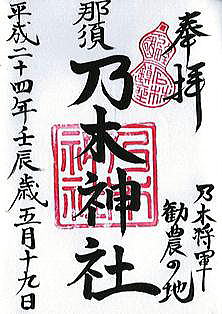 奉拝
乃木将軍
勧農の地
那須
乃木神社
平成二十四年壬辰歳五月十九日
乃木神社